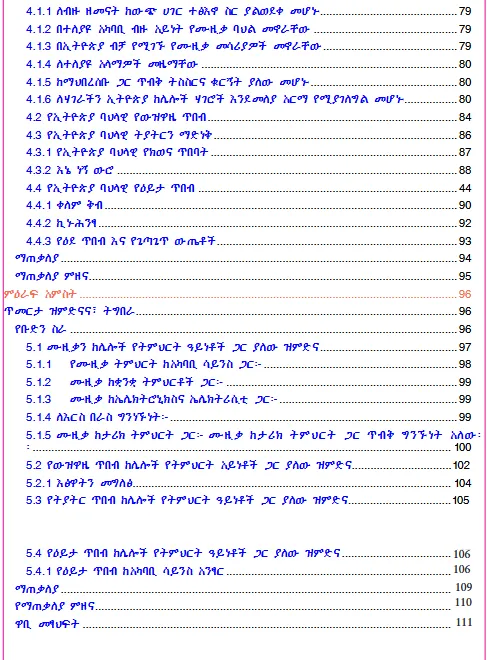 4.1.1 ለብዙ ዘመናት ከውጭ ሀገር ተፅእዋ ስር ያልወደቀ መሆኑ 79
4.1.2 በተለያዩ አካባቢ ብዙ አይነት የሙዚቃ ባህል መኖራቸው 79
4.1.3 በኢትዮጵያ ብቻ የሚገኙ የሙዚቃ መሳሪያዎች መኖራቸው 79
4.1.4 ለተለያዩ አላማዎች መዜማቸው 80
4.1.5 ከማህበረሰቡ ጋር ጥብቅ ትስስርና ቁርኝት ያለው መሆኑ 80
4.1.6 ለሃገራችን ኢትዮጵያ ከሌሎች ሃገሮች እንደመለያ አርማ የሚያገለግል መሆኑ 80
4.2 የኢትዮጵያ ባህላዊ የውዝዋዜ ጥበብ 84
4.3 የኢትዮጵያ ባህላዊ ትያትርን ማድነቅ 86
4.3.1 የኢትዮጵያ ባህላዊ የክወና ጥበባት 87
4.3.2 እኔ ነኝ ውሮ 88
4.4 የኢትዮጵያ ባህላዊ የዕይታ ጥበብ 44
4.4.1 ቀለም ቅብ 90
4.4.2 ኪነ-ሕንፃ 92
4.4.3 የዕደ ጥበብ እና የጌጣጌጥ ውጤቶች 93
ማጠቃለያ 94
ማጠቃለያ ምዘና 95
ምዕራፍ አምስት 96
ጥመርታ ዝምድናና፣ ትግበራ 96
የቡድን ስራ 96
5.1 ሙዚቃን ከሌሎች የትምህርት ዓይነቶች ጋር ያለው ዝምድና 97
5.1.1 የሙዚቃ ትምህርት ከአካባቢ ሳይንስ ጋር፦ 98
5.1.2 ሙዚቃ ከቋንቋ ትምህርቶች ጋር፦ 99
5.1.3 ሙዚቃ ከኤሌክትሮኒክስና ኤሌክትሪሲቲ ጋር፦ 99
5.1.4 ለእርስ በራስ ግንኘኙነት፦ 99
5.1.5 ሙዚቃ ከታሪክ ትምህርት ጋር፦ ሙዚቃ ከታሪክ ትምህርት ጋር ጥብቅ ግንኙነት አለው፡
፡ 100
5.2 የውዝዋዜ ጥበብ ከሌሎች የትምህርት አይነቶች ጋር ያለው ዝምድና 102
5.2.1 እፅዋትን መግለፅ 104
5.3 የትያትር ጥበብ ከሌሎች የትምህርት ዓይነቶች ጋር ያለው ዝምድና 105
5.4 የዕይታ ጥበብ ከሌሎች የትምህርት ዓይነቶች ጋር ያለው ዝምድና 106
5.4.1 የዕይታ ጥበብ ከአካባቢ ሳይንስ አንፃር 106
ማጠቃለያ 109
የማጠቃለያ ምዘና 110
ዋቢ መፃህፍት 111